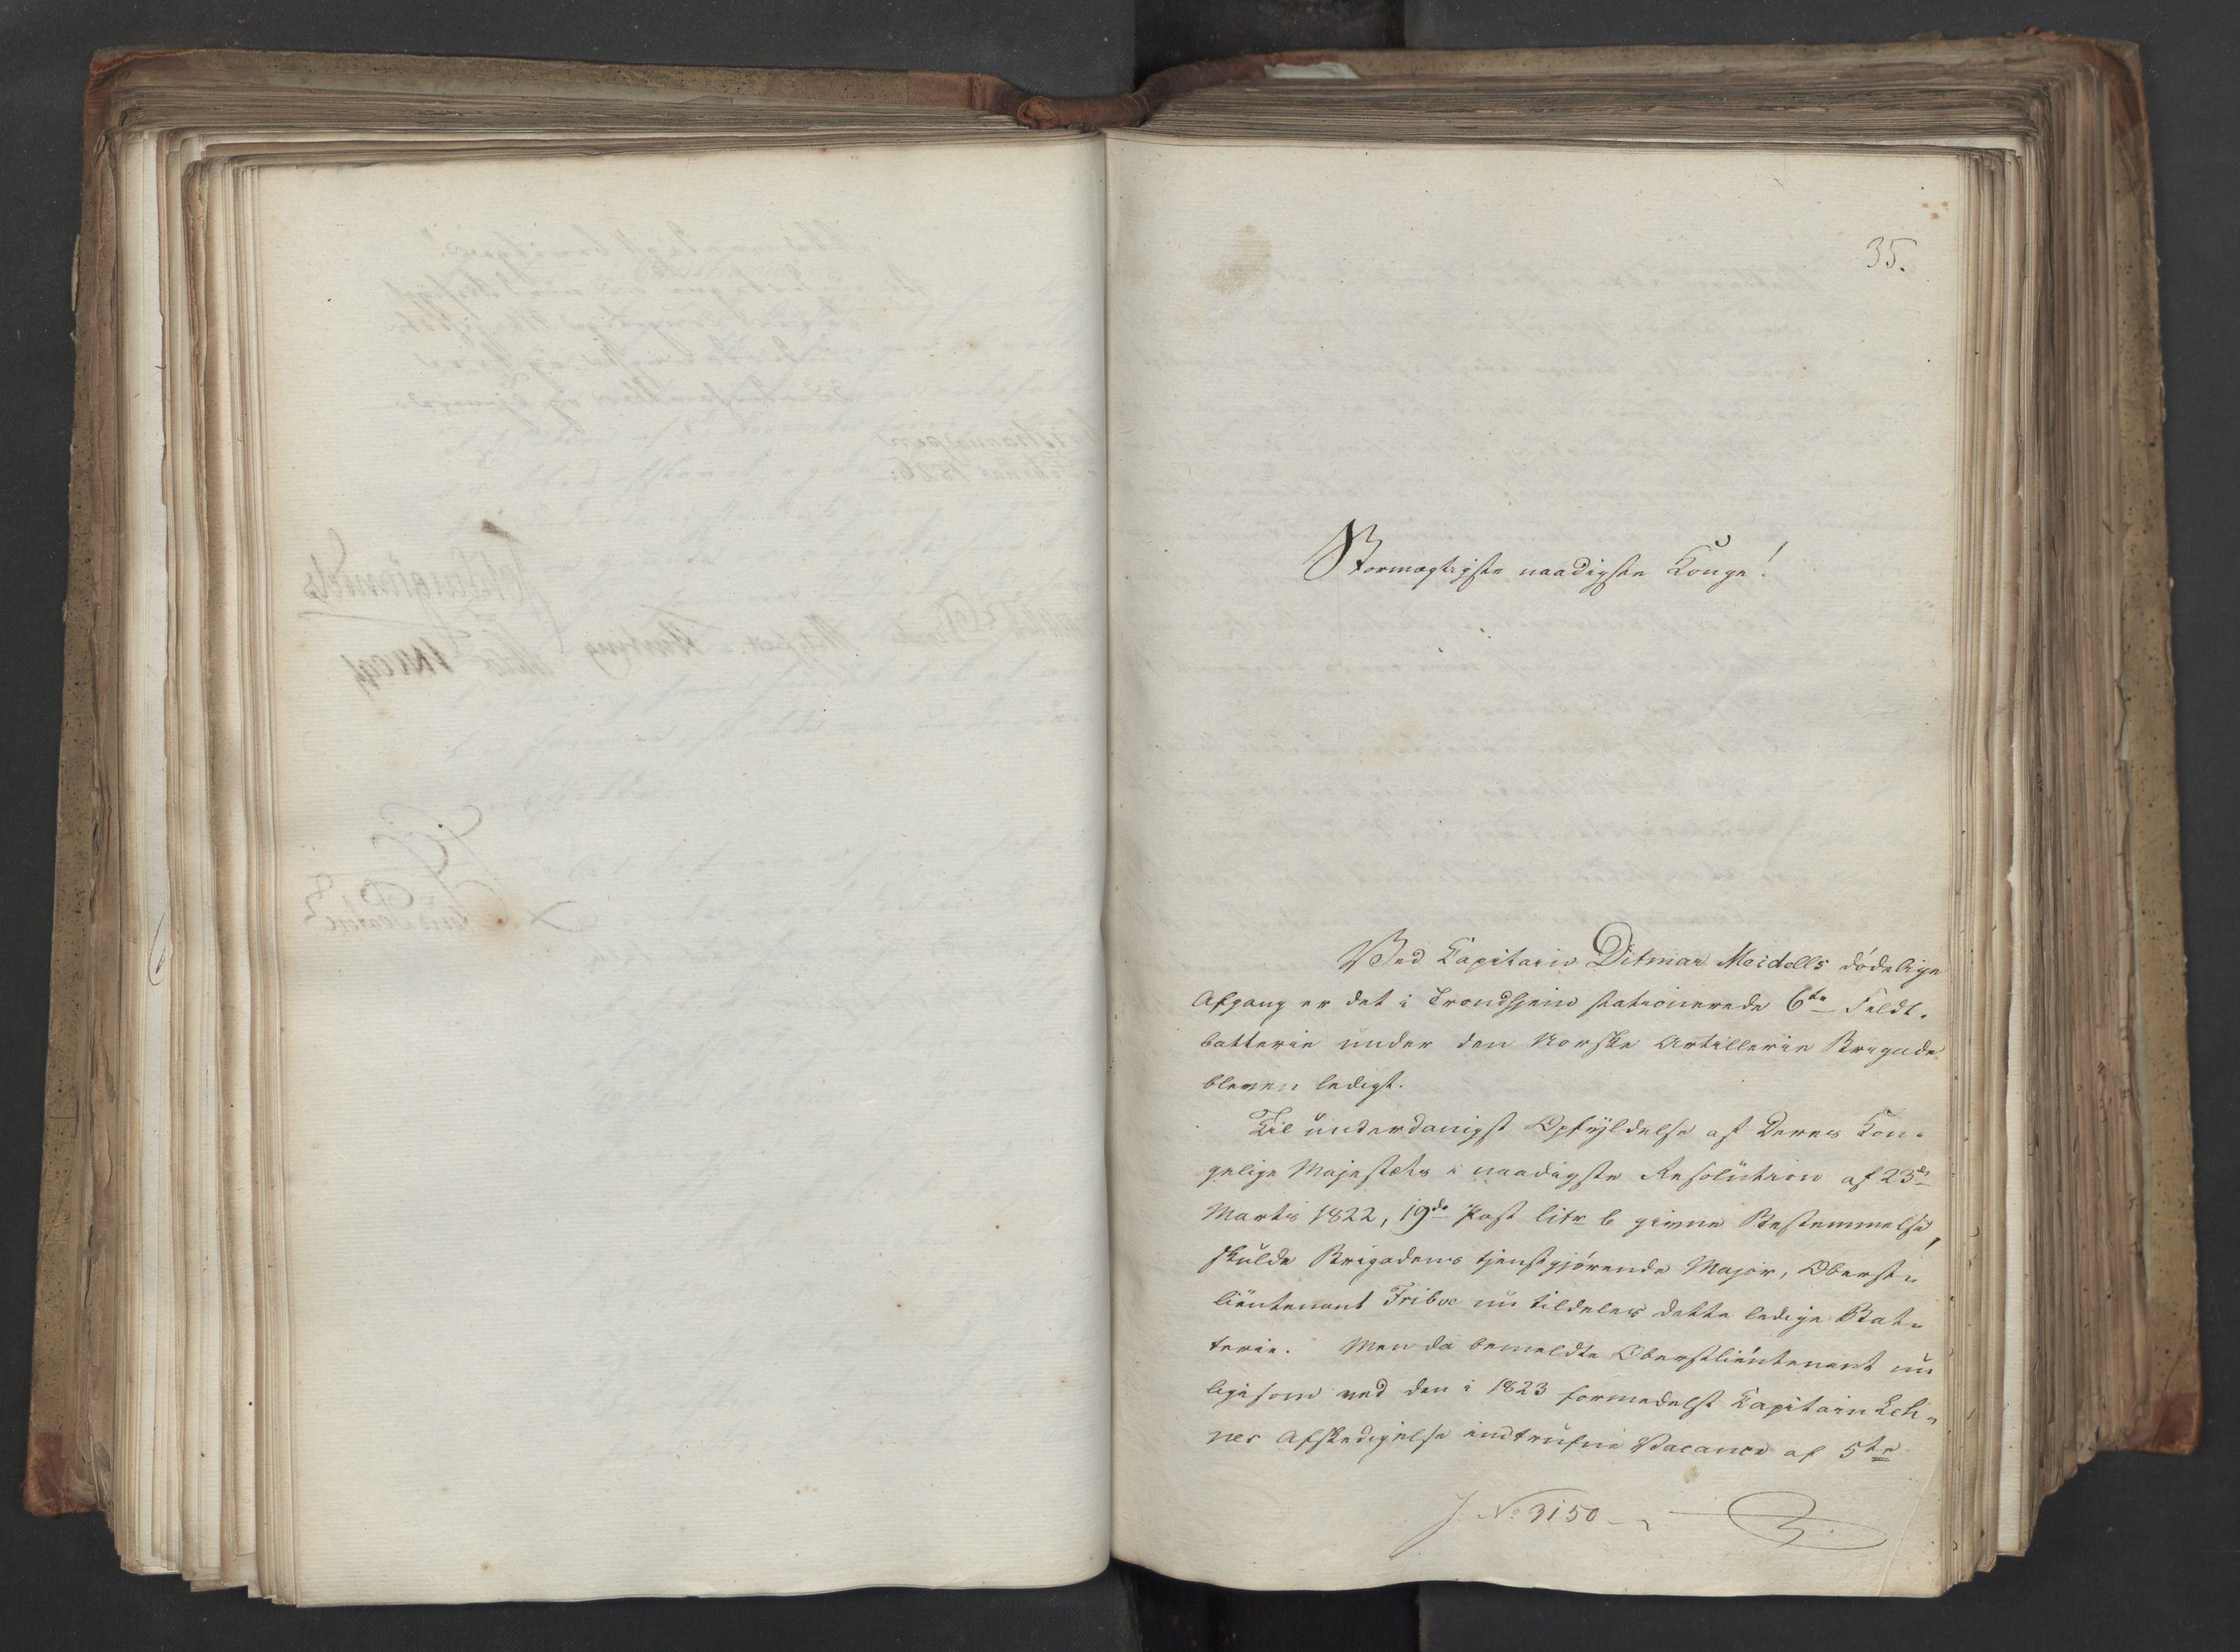 35.
Stormægtigste naadigste Konge!
Ved Capitain Ditmar Meidells dødelige
Afgang er det i Trondhjem stationerede 6te Feldt-
batterie under den Norske Artillerie Brigade
bleven ledigt.
Til underdanigst Opfyldelse af Deres Kon-
gelige Majestæts i naadigste Resolution af 23de
Marts 1822, 19de Post litr b givne Bestemmelse,
skulde Brigadens tjenstgjørende Major, Oberst-
lieutenant Triboe nu tildeles dette ledige Bat-
terie. Men da bemeldte Oberstlieutenant nu
ligesom ved den i 1823 formedelst Capitain
Afskedigelse indtrufne Vacance af 5te
J. No 3150